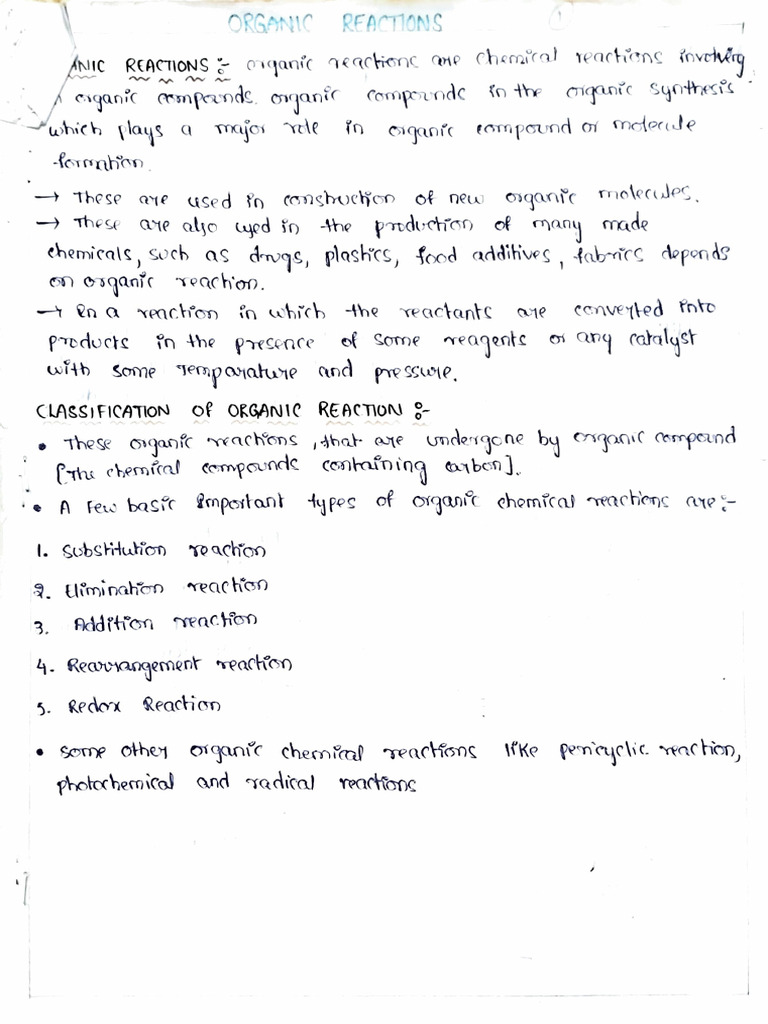 ORGANIC REACTIONS 1
ANIC REACTIONS :- organic reactions are chemical reactions involving
organic compounds. organic compounds in the organic synthesis
which plays a major role in organic compound or molecule
formation.
→ These are used in construction of new organic molecules.
→ These are also used in the production of many made
chemicals, such as drugs, plastics, food additives, fabrics depends
on organic reaction.
→ In a reaction in which the reactants are converted into
products in the presence of some reagents or any catalyst
with some Temparature and pressure.
CLASSIFICATION Of ORGANIC REACTION :-
• These organic reactions, that are undergone by organic compound
[The chemical compounds containing carbon].
• A Few basic Important types of organic chemical reactions are:-
1. Substitution reaction
2. Elimination reaction
3. Addition reaction
4. Rearrangement reaction
5. Redox Reaction
• Some other organic chemical reactions like pericyclic reaction,
photochemical and radical reactions